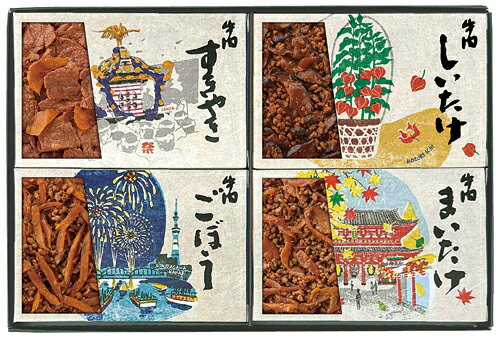 牛肉
すきやき
祭
牛肉
しいたけ
牛肉
ごぼう
牛肉
まいたけ